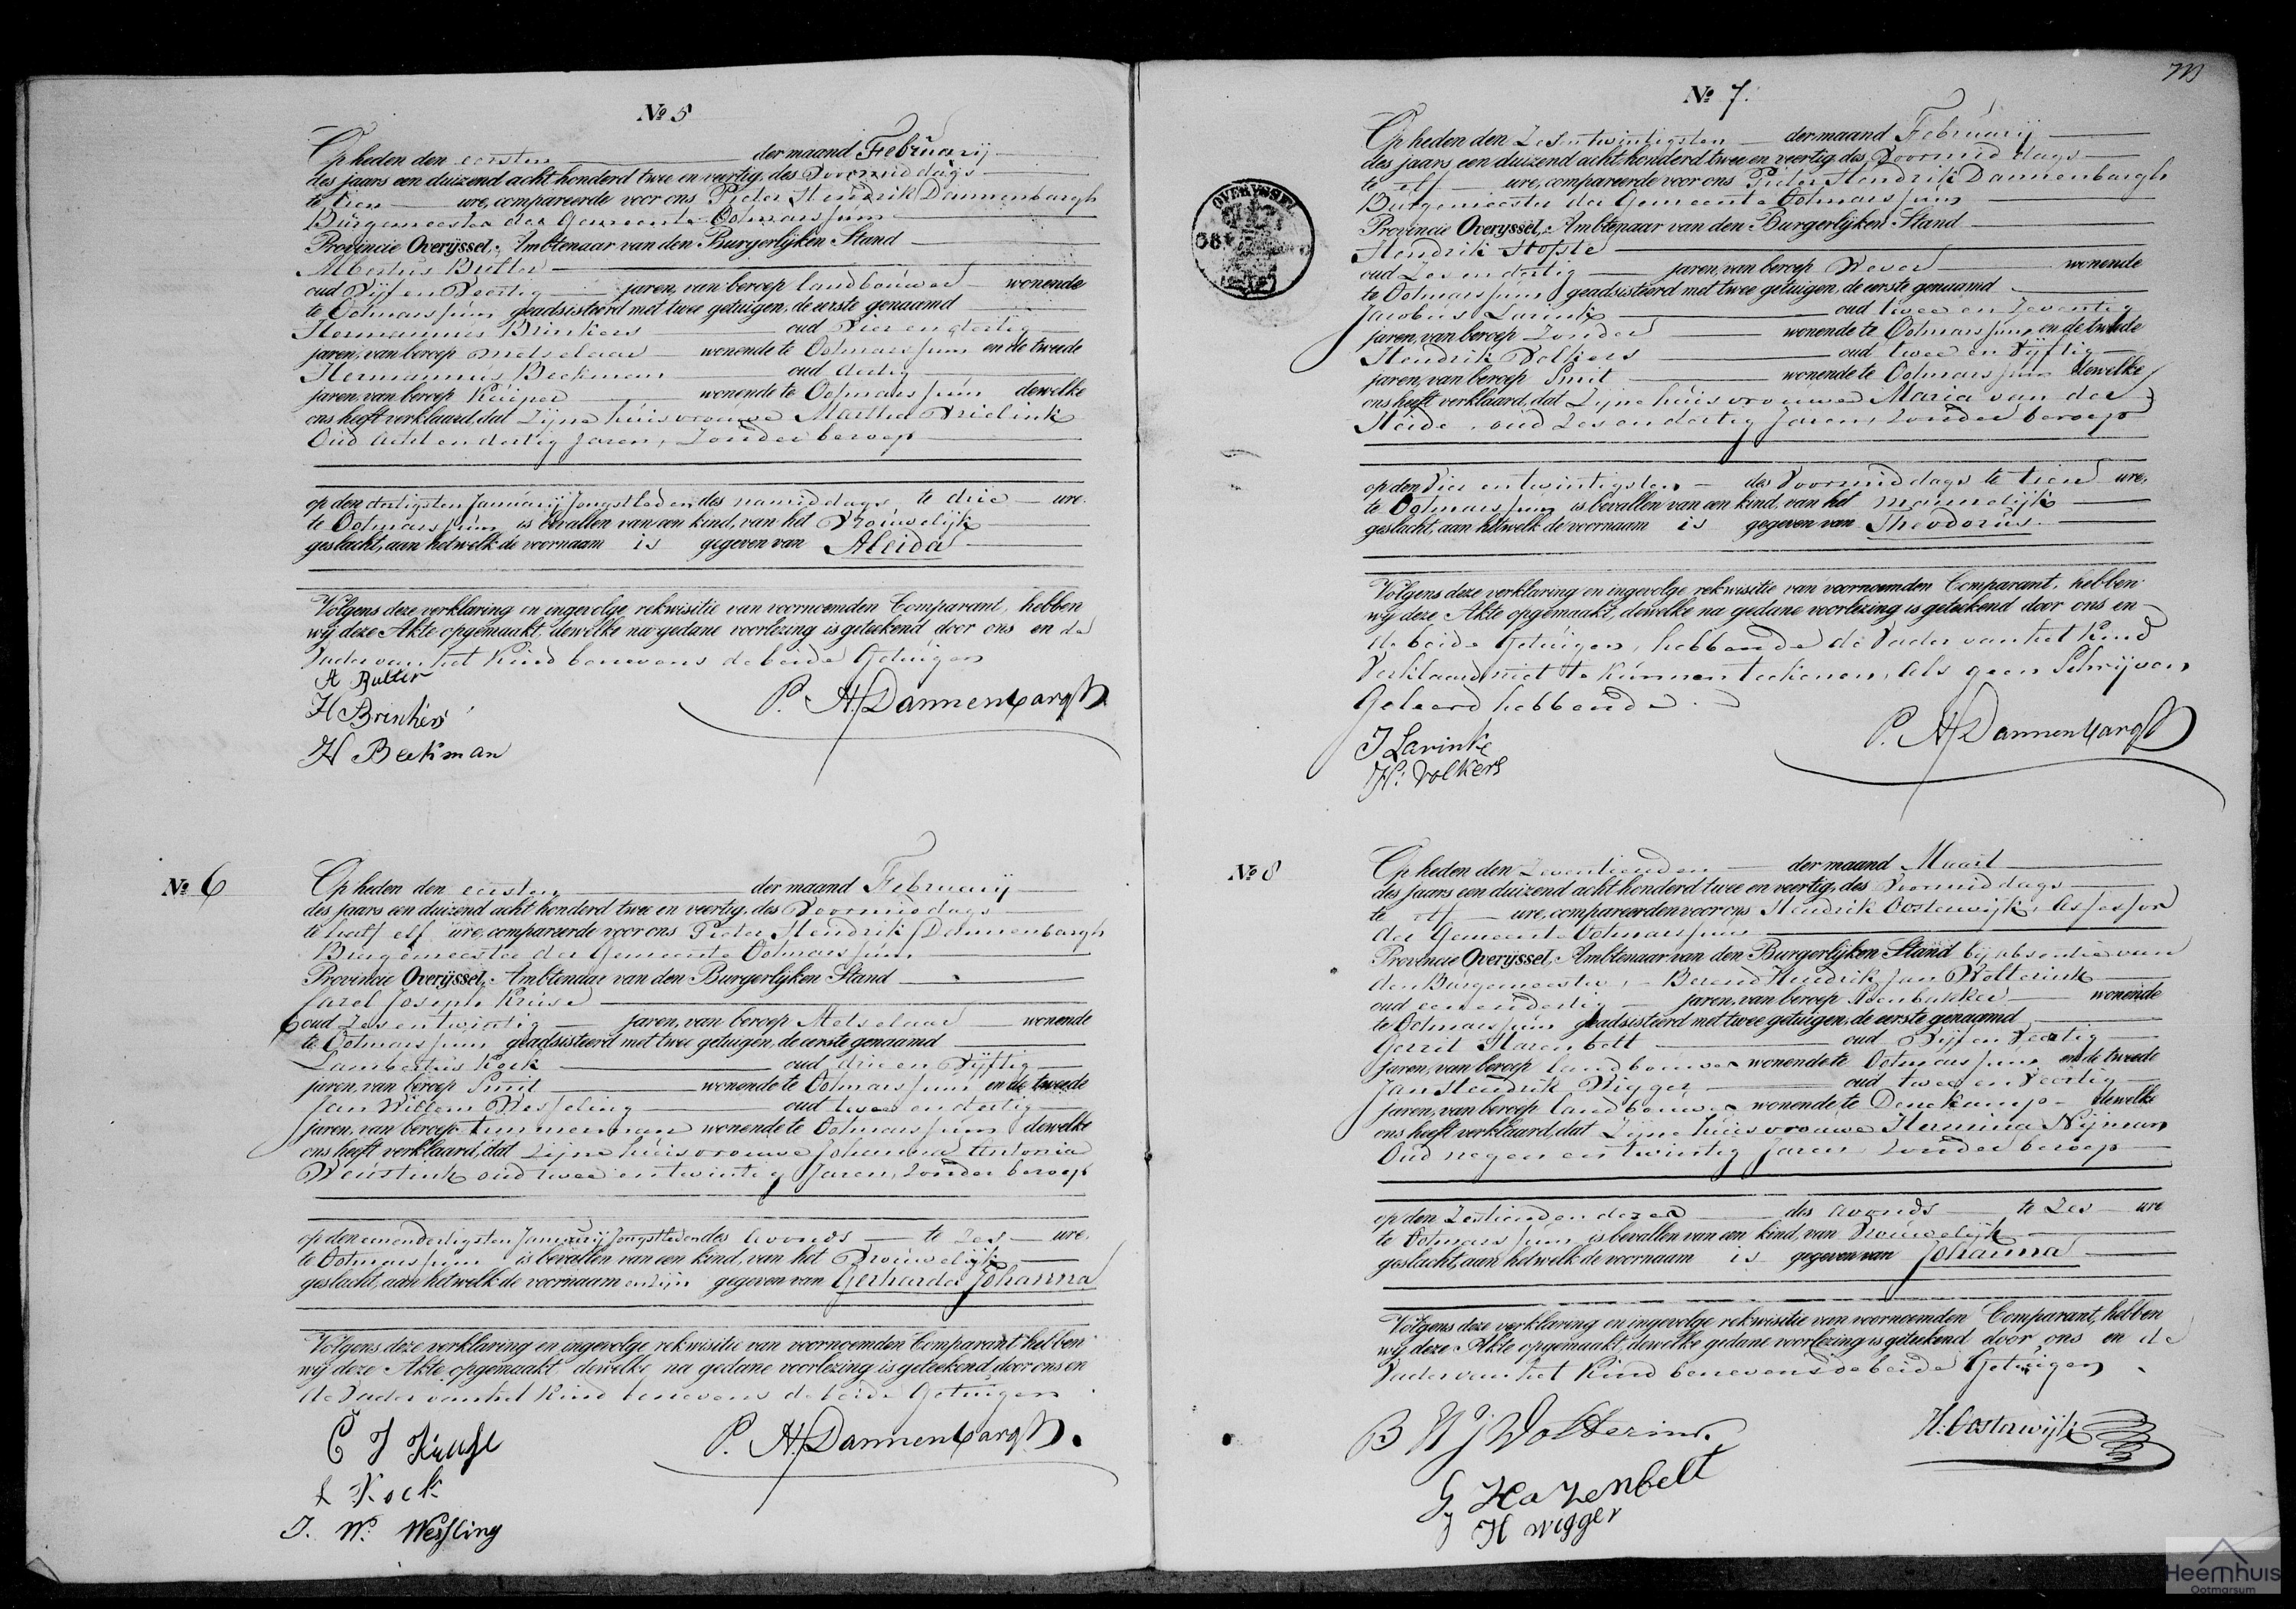 No 5
Op heden den eersten der maand Februarij
des jaars een duizend acht honderd twee en veertig, des Voormiddags
te tien ure, compareerde voor ons Pieter Hendrik Dannenbargh
Burgemeester der Gemeente Ootmarssum
Provincie Overijssel, Ambtenaar van den Burgerlijken Stand
Albertus Bulter
oud Vijf en Veertig jaren, van beroep landbouwer wonende
te Ootmarssum geadsisteerd met twee getuigen, de eerste genaamd
Hermannus Brinkers oud Vier en dertig
jaren, van beroep metselaar wonende te Ootmarssum en de tweede
Hermannus Beekman oud dertig
jaren, van beroep Kuiper wonende te Ootmarssum dewelke
ons heeft verklaard, dat Zijne huisvrouwe Martha Vrielink
Oud acht en dertig Jaren, Zonder beroep
op den dertigsten Januarij Jongstleden des namiddags te drie ure.
te Ootmarssum is bevallen van een kind, van het Vrouwelijk
geslacht, aan hetwelk de voornaam is gegeven van Aleida
Volgens deze verklaring en ingevolge rekwisitie van voornoemden Comparant, hebben
wij deze Akte opgemaakt, dewelke na gedane voorlezing is geteekend door ons en de
Vader van het Kind benevens de beide Getuigen
A Bulter
H Brinkers
P. H. Dannenbargh
H Beekman
No 6
Op heden den eersten der maand Februarij
des jaars een duizend acht honderd twee en veertig, des Voormiddags
te half elf ure, compareerde voor ons Pieter Hendrik Dannenbargh
Burgemeester der Gemeente Ootmarssum
Provincie Overijssel, Ambtenaar van den Burgerlijken Stand
Carel Joseph Kruse
oud Zes en twintig jaren, van beroep Metselaar wonende
te Ootmarssum geadsisteerd met twee getuigen, de eerste genaamd
Lambertus Kock oud drie en Vijftig
jaren, van beroep Smit wonende te Ootmarssum en de tweede
Jan Willem Wesseling oud twee en dertig
jaren, van beroep timmerman wonende te Ootmarssum dewelke
ons heeft verklaard, dat Zijne huisvrouwe Johanna Antonia
Weustink oud twee en twintig Jaren, Zonder beroep
op den eenendertigsten Januarij Jongstleden des avonds te Zes ure.
te Ootmarssum is bevallen van een kind, van het Vrouwelijk
geslacht, aan hetwelk de voornaam en zijn gegeven van Gerharda Johanna
Volgens deze verklaring en ingevolge rekwisitie van voornoemden Comparant hebben
wij deze Akte opgemaakt dewelke na gedane voorlezing is geteekend door ons en
de Vader van het Kind benevens de beide Getuigen
C J Kruse
P. H. Dannenbargh
L Kock
J. W. Wesseling
No 7.
Op heden den Zesentwintigsten der maand Februarij
des jaars een duizend acht honderd twee en veertig, des Voormiddags
te elf ure, compareerde voor ons Pieter Hendrik Dannenbargh
Burgemeester der Gemeente Ootmarssum
Provincie Overijssel, Ambtenaar van den Burgerlijken Stand
OVERYSSEL
Hendrik Hofste
oud Zes en dertig jaren, van beroep Wever wonende
te Ootmarssum geadsisteerd met twee getuigen, de eerste genaamd
Jacobus Larink oud twee en Zeventig
jaren, van beroep Zonder wonende te Ootmarssum en de tweede
Hendrik Volkers oud twee en Vijftig
jaren, van beroep Smit wonende te Ootmarssum dewelke
ons heeft verklaard, dat Zijne huisvrouwe Maria van der
Heide, oud Zes en dertig Jaren, Zonder beroep
op den Vier en twintigsten des Voormiddags te tien ure,
te Ootmarssum is bevallen van een kind, van het mannelijk
geslacht, aan hetwelk de voornaam is gegeven van Theodorus.
Volgens deze verklaring en ingevolge rekwisitie van voornoemden Comparant, hebben
wij deze Akte opgemaakt, dewelke na gedane voorlezing is geteekend door ons en
de beide Getuigen, hebbende de Vader van het Kind
Verklaard niet te kunnen teekenen, als geen Schrijven
Geleerd hebbende.
J Larink
P. H. Dannenbargh
H. Volkers
No 8
Op heden den Zeventienden der maand Maart
des jaars een duizend acht honderd twee en veertig, des Voormiddags
te elf ure, compareerden voor ons Hendrik Oosterwijk, Assessor
der Gemeente Ootmarssum
Provincie Overijssel, Ambtenaar van den Burgerlijken Stand bij absentie van
den Burgemeester, Berend Hendrik Jan Wolterink
oud een en dertig jaren, van beroep Steenbakker wonende
te Ootmarssum geadsisteerd met twee getuigen, de eerste genaamd
Gerrit Harenbelt oud Vijf en Veertig
jaren, van beroep landbouwer wonende te Ootmarssum en de tweede
Jan Hendrik Wigger oud twee en Veertig
jaren, van beroep landbouwer wonende te Denekamp dewelke
ons heeft verklaard, dat Zijne huisvrouwe Hermina Nijman
Oud negen en twintig Jaren Zonder beroep
op den Zestienden dezer des avonds te Zes ure
te Ootmarssum is bevallen van een kind, van Vrouwelijk
geslacht, aan hetwelk de voornaam is gegeven van Johanna
Volgens deze verklaring en ingevolge rekwisitie van voornoemden Comparant, hebben
wij deze Akte opgemaakt, dewelke gedane voorlezing is geteekend door ons en de
Vader van het Kind benevens de beide Getuigen
B H J Wolterink
H. Oosterwijk
G Hazenbelt
J H Wigger
Heemhuis
Ootmarsum